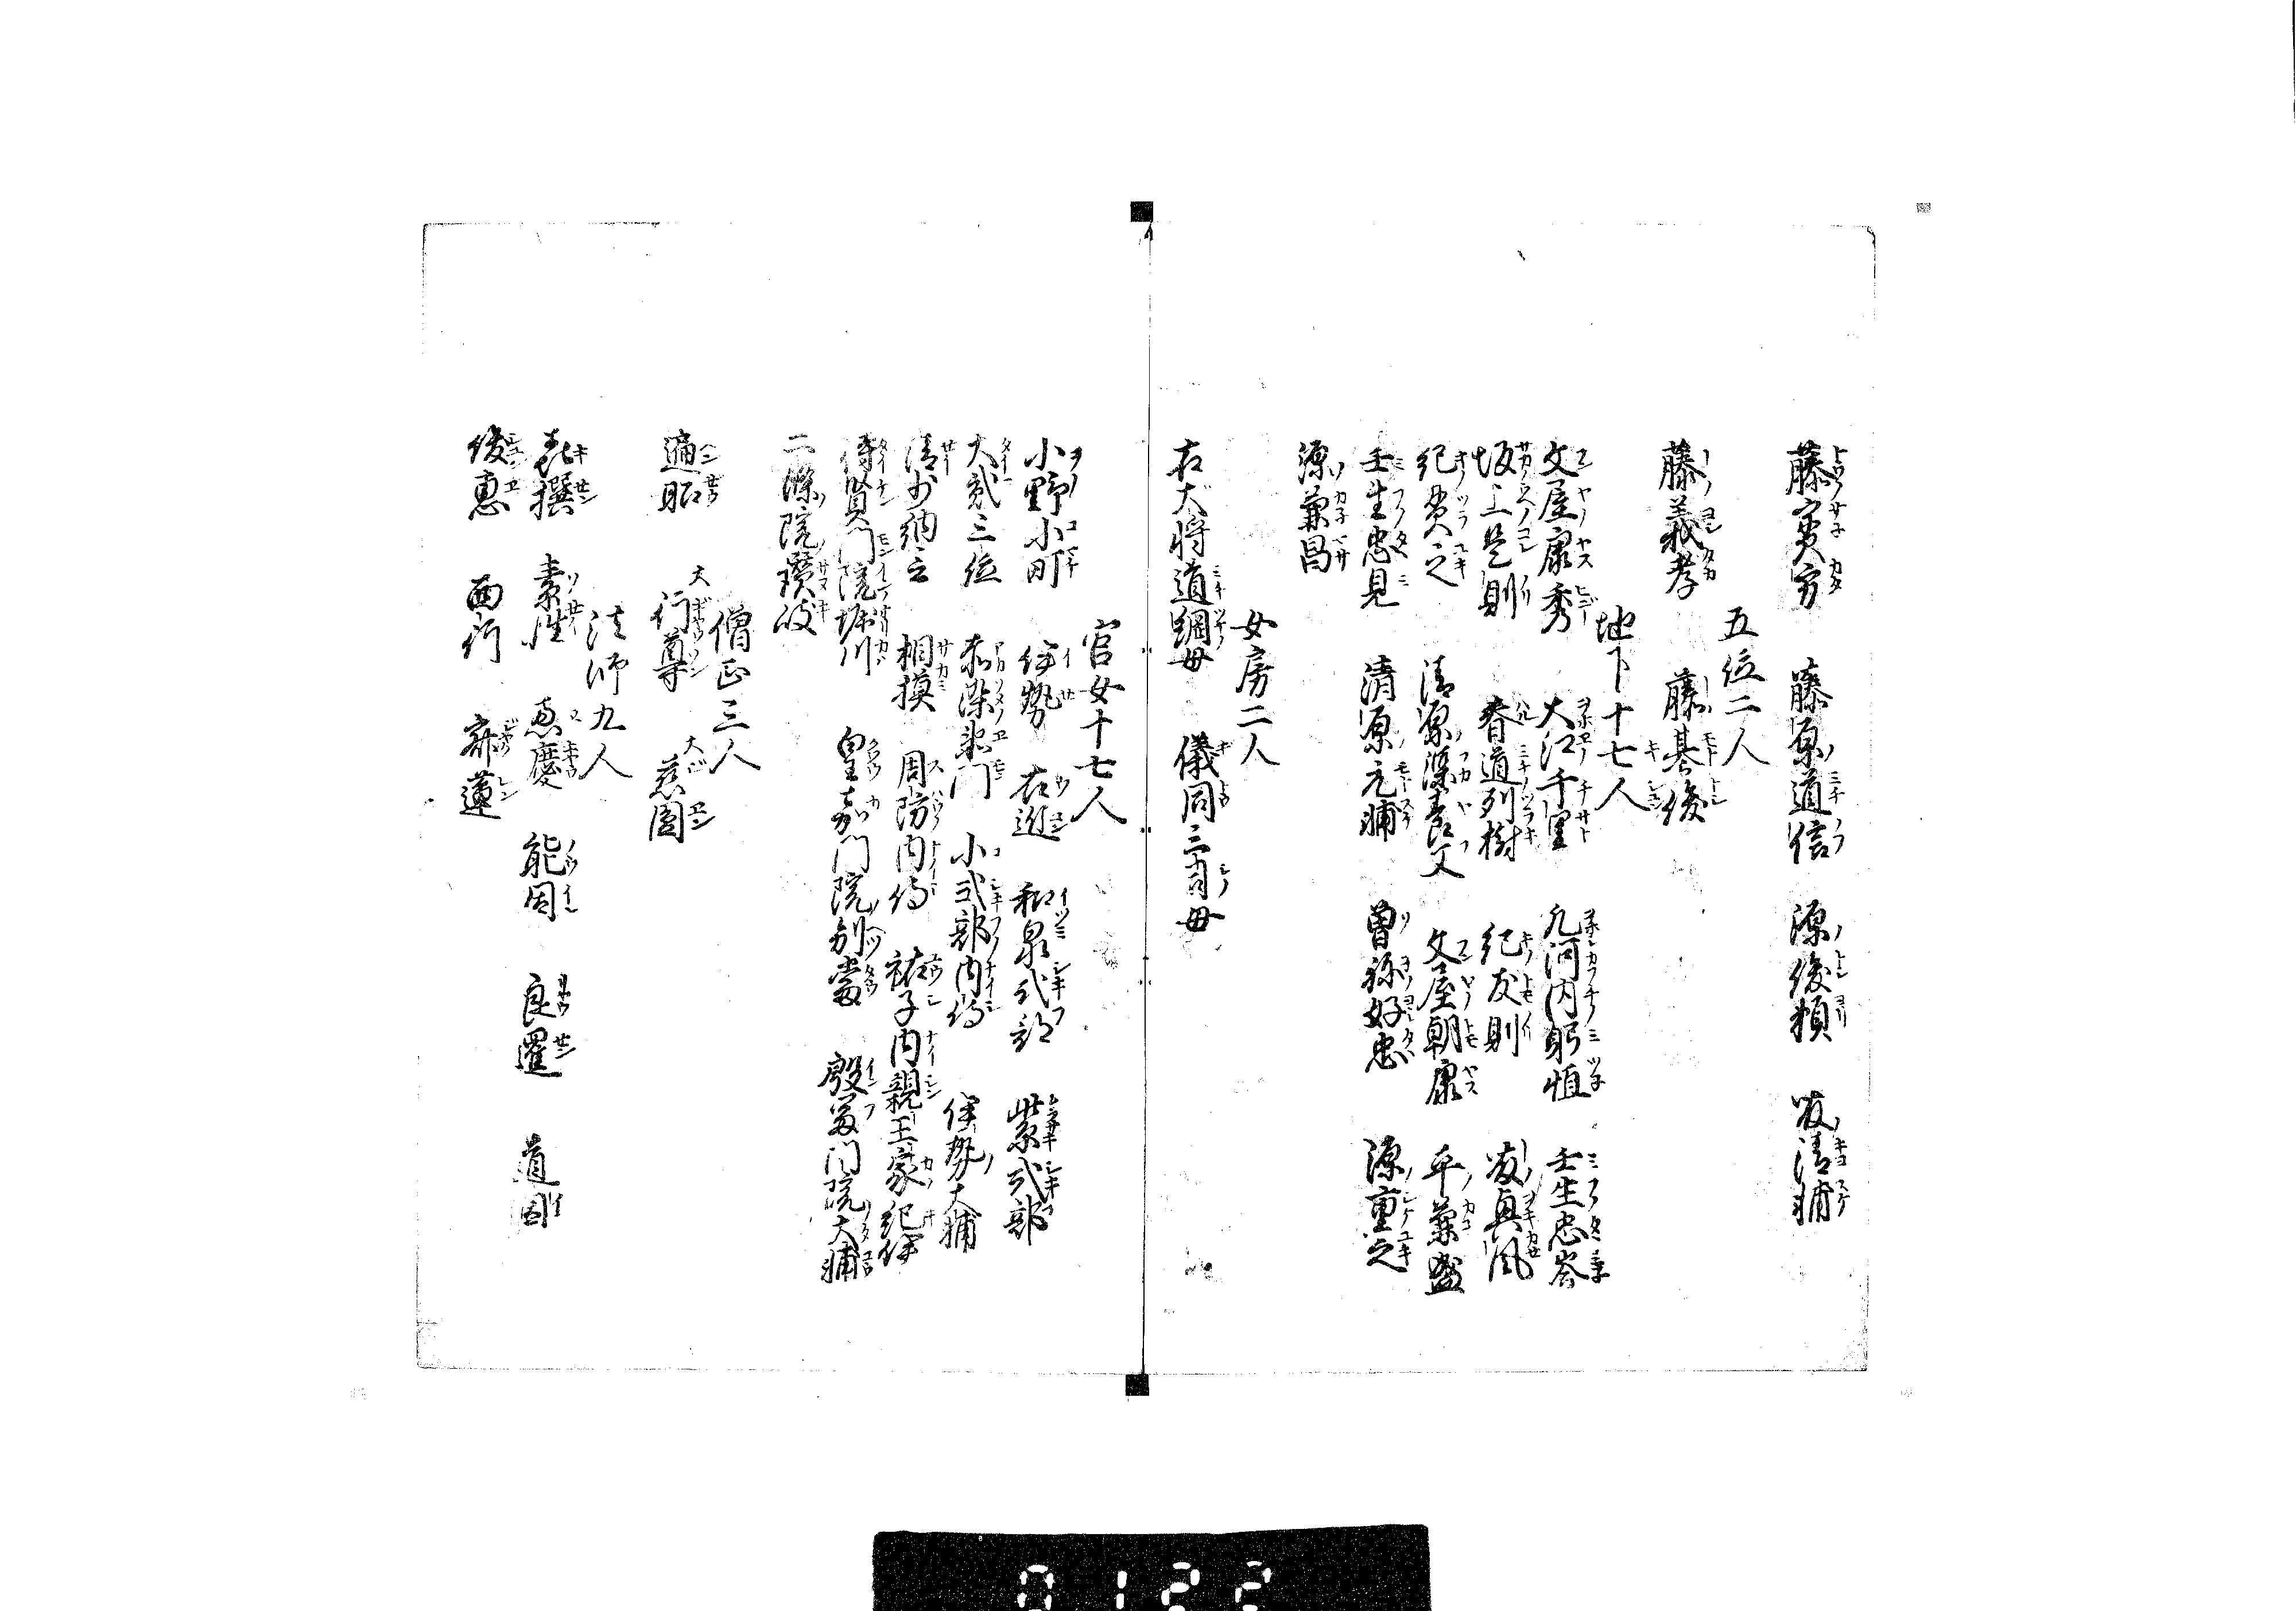 藤実方 藤原道信 源俊頼 藤清輔
五位二人
藤義孝 藤基俊
地下十七人
文屋康秀 大江千里 凡河内躬恒 壬生忠岑
坂上是則 春道列樹 紀友則 藤興風
紀貫之 清原深養父 文屋朝康 平兼盛
壬生忠見 清原元輔 曽祢好忠 源重之
源兼昌
女房二人
右大将道綱母 儀同三司母
官女十七人
小野小町 伊勢 右近 和泉式部 紫式部
大貳三位 赤染衛門 小式部内侍 伊勢大輔
清少納言 相摸 周防内侍 祐子内親王家紀伊
待賢門院堀川 皇嘉門院別當 殷冨門院大輔
二條院讃岐
僧正三人
遍昭 大行尊 大慈圓
法師九人
喜撰 素性 恵慶 能因 良暹 道因
俊恵 西行 寂蓮
0122